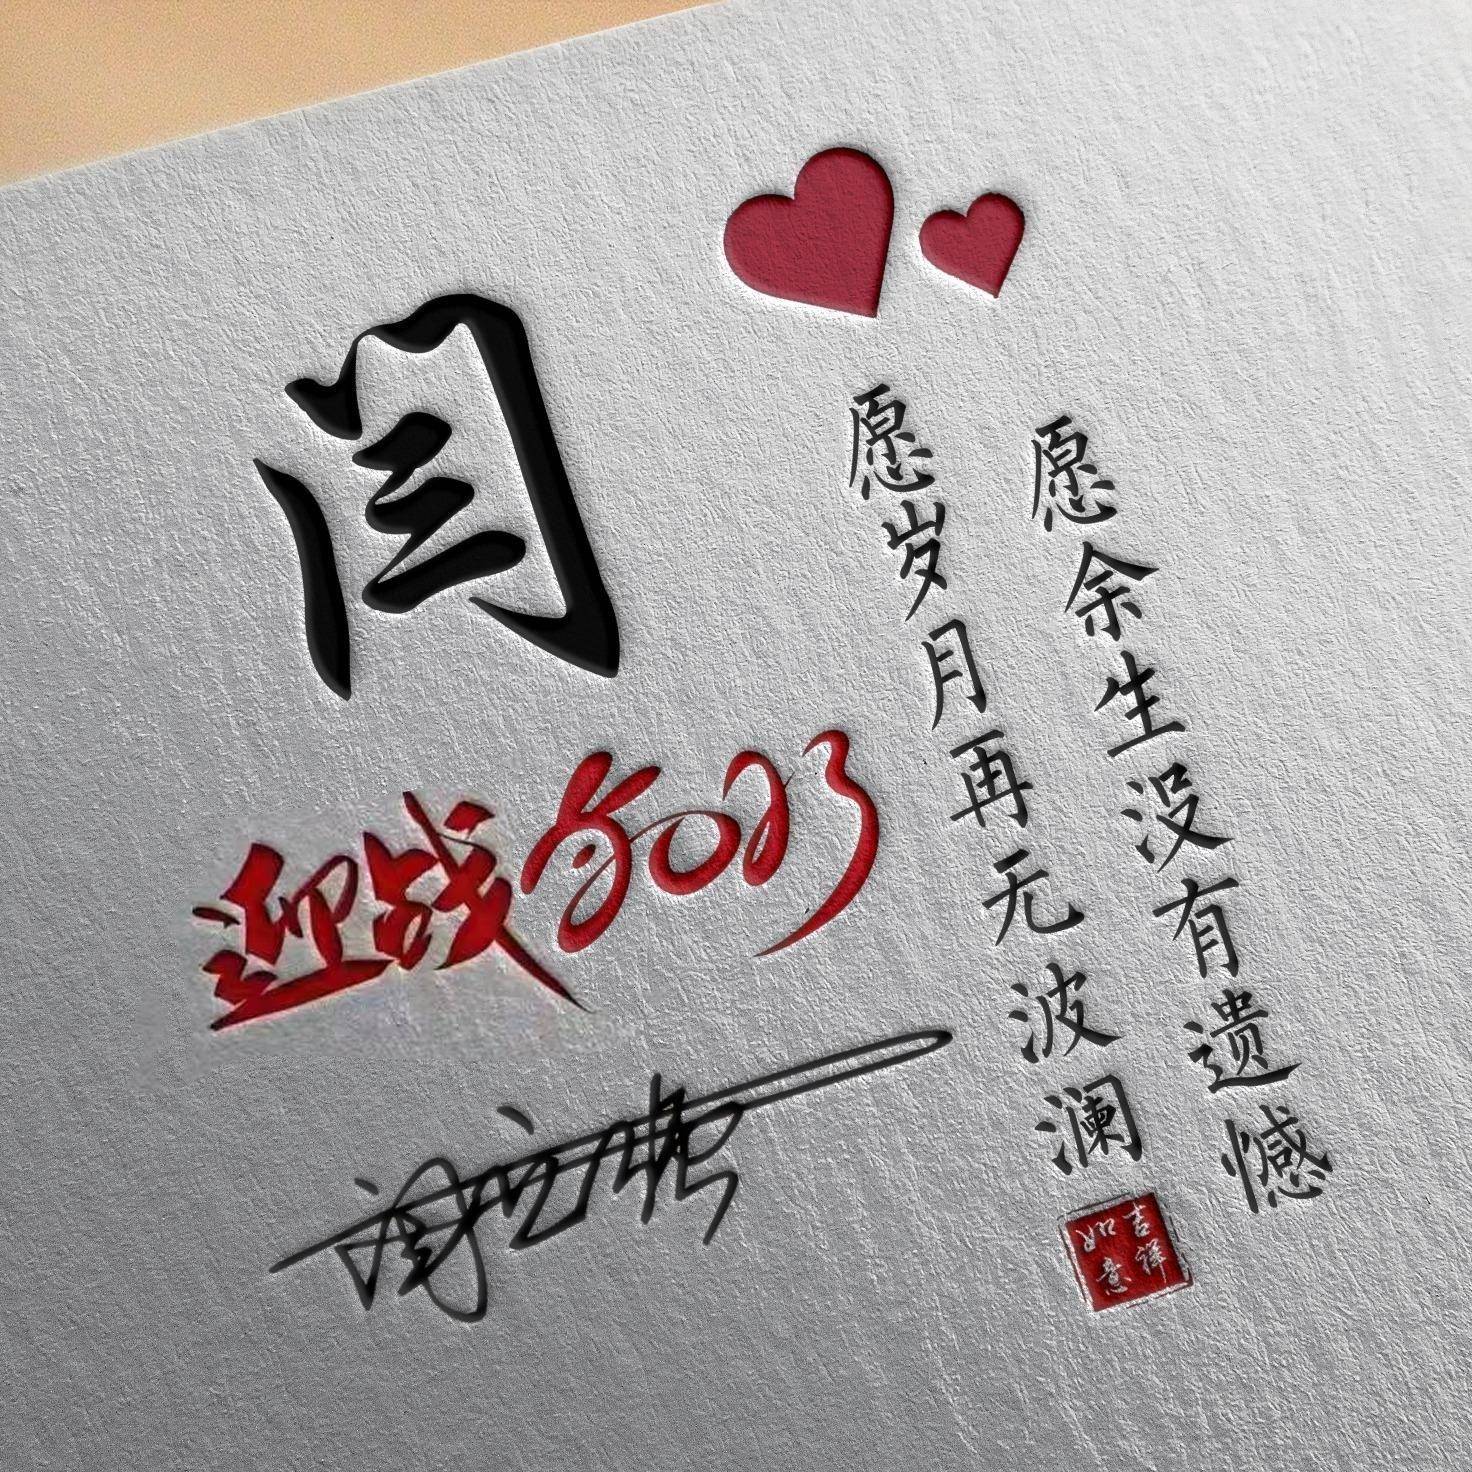 闫
迎战2023
愿岁月再无波澜
愿余生没有遗憾
吉祥
如意